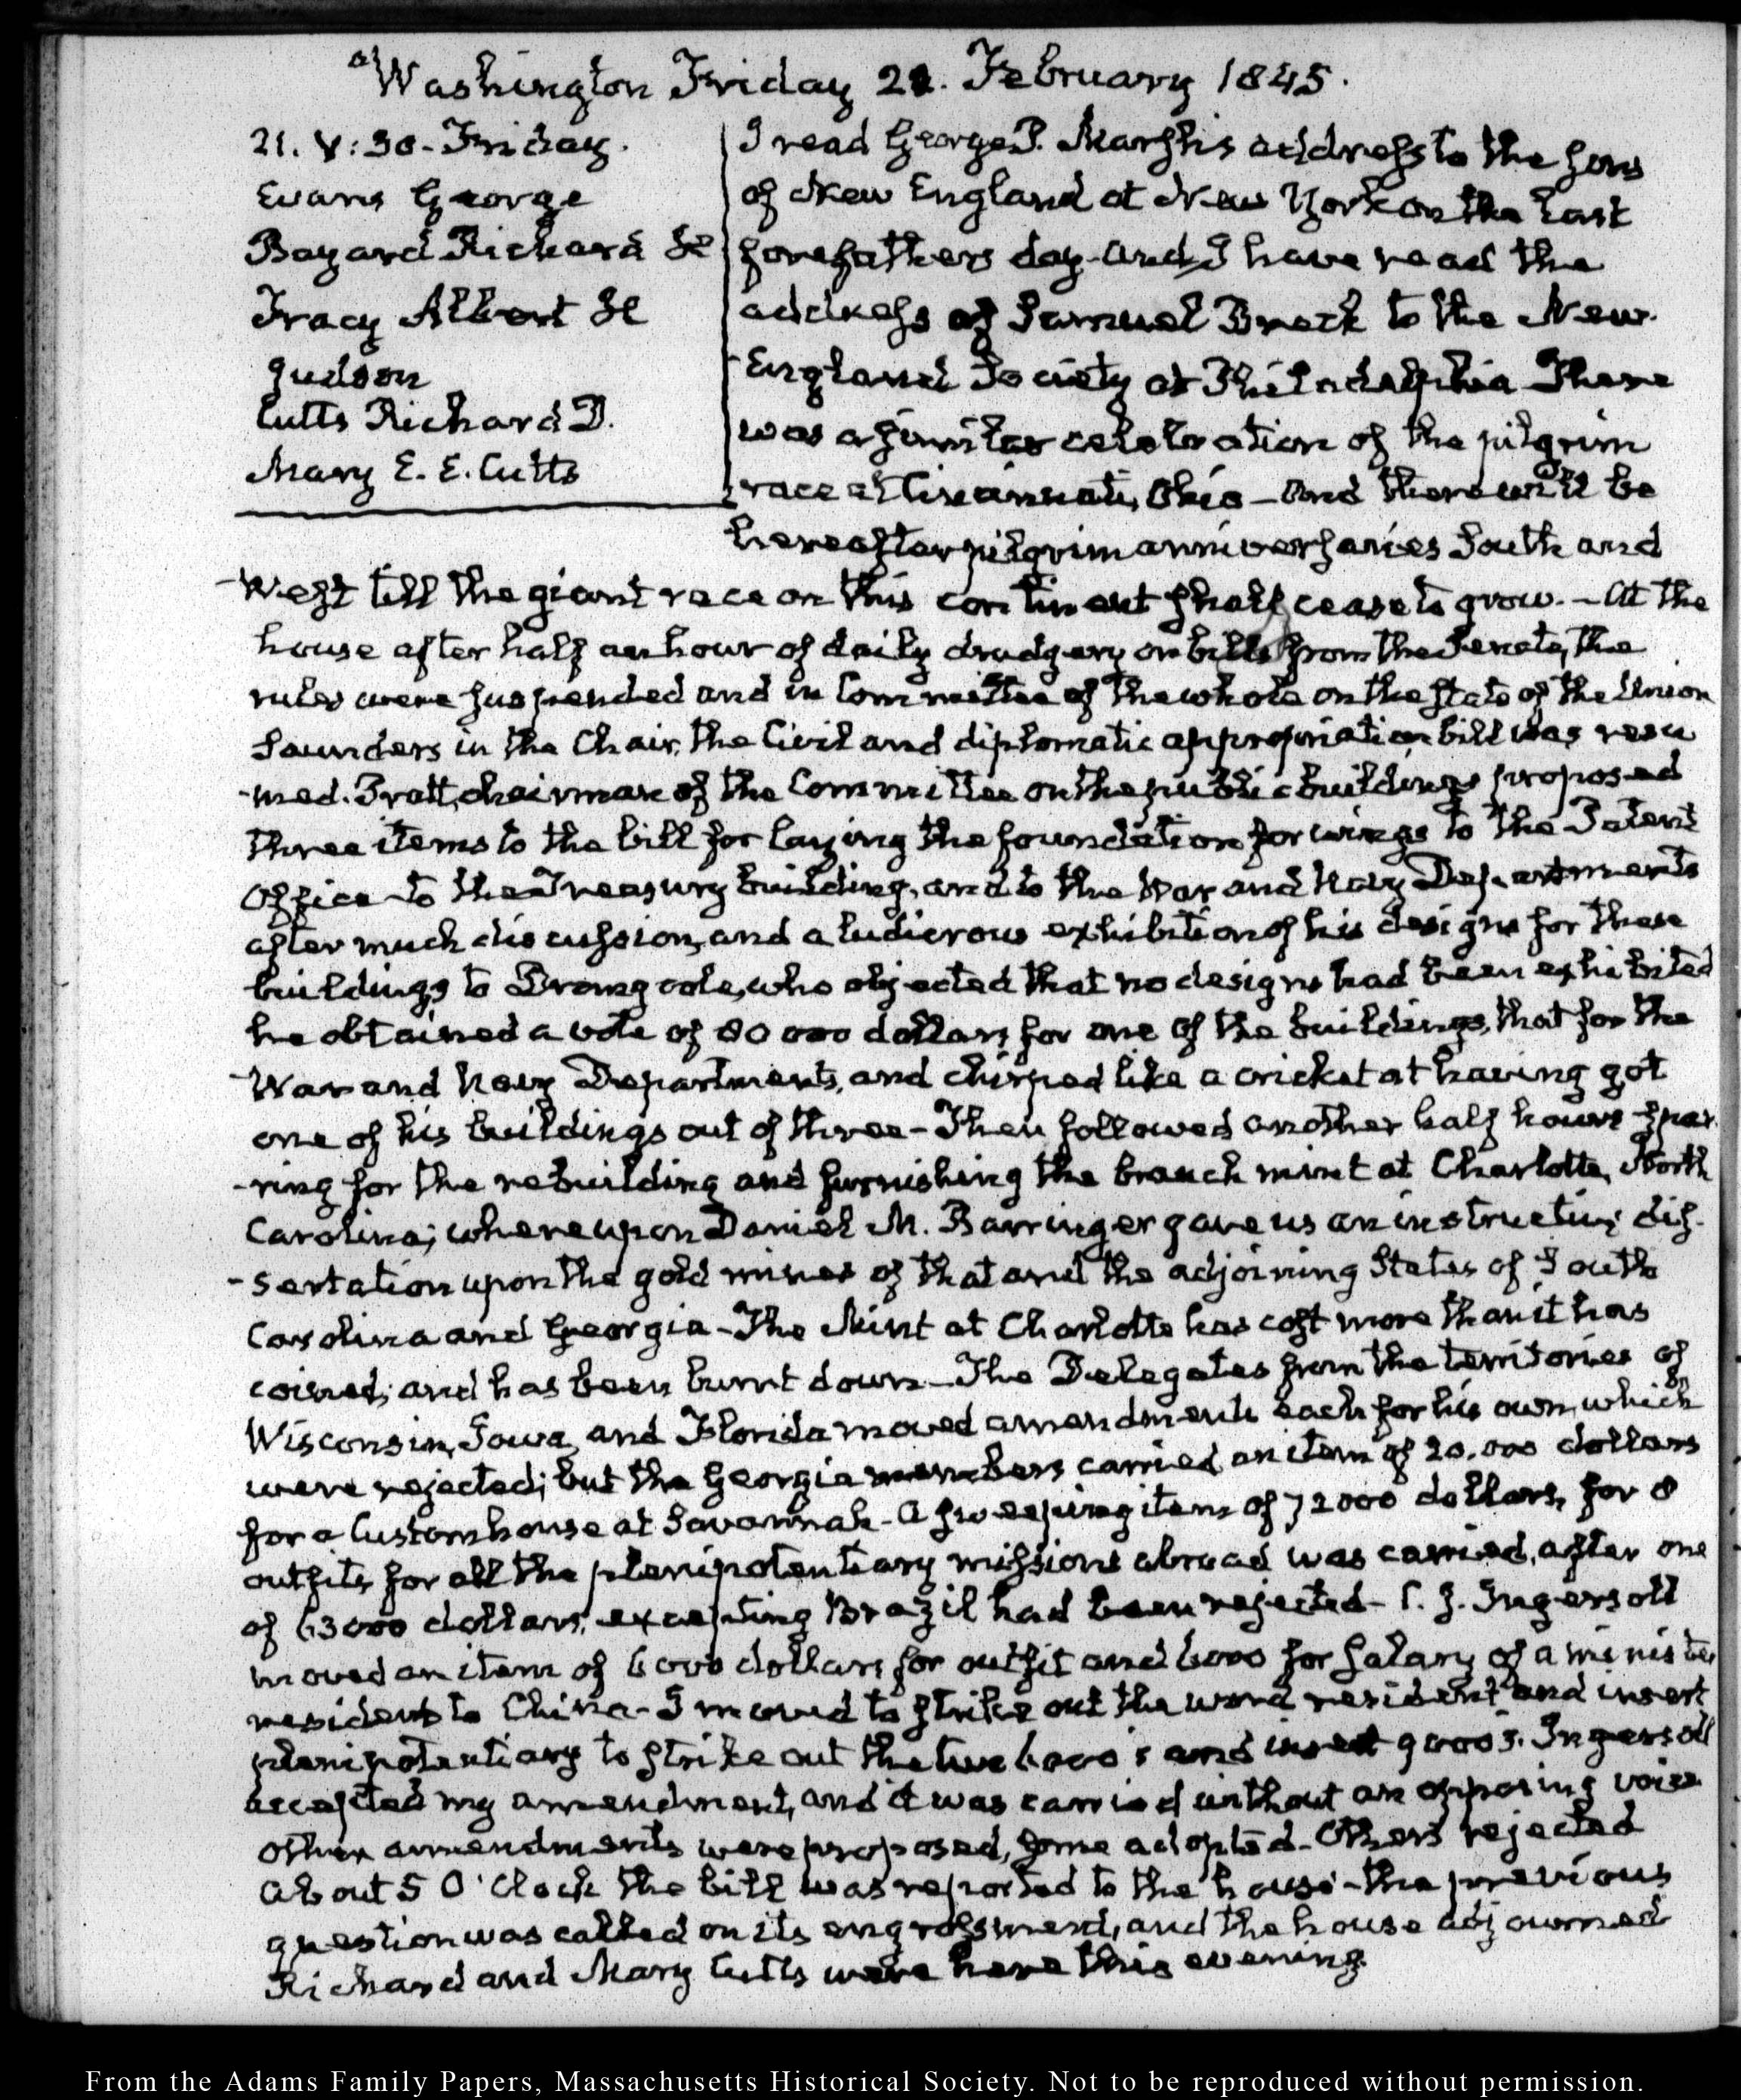 Washington Friday 21. February 1845.
21. V:30. Friday.
Evans George
Bayard Richard H
Tracy Albert H
Judson
Cutts Richard D.
Mary E. E. Cutts
I read George P. Marsh's address to the sons
of New England at New York on the last
forefathers day and I have read the
address of Samuel Breck to the New-
England Society at Philadelphia There
was a similar celebration of the pilgrim
race at Cincinnati, Ohio — and there will be
hereafter pilgrim anniversaries South and
West till the giant race on this continent shall cease to grow. — At the
house after half an hour of daily drudgery on bills from the Senate, the
rules were suspended and in Committee of the whole on the state of the Union
Saunders in the Chair, the Civil and diplomatic appropriation bill was resu
-med. Pratt, chairman of the Committee on the public buildings proposed
three items to the bill for laying the foundation for wings to the Patent
Office to the Treasury building, and to the War and Navy Departments
after much discussion, and a ludicrous exhibition of his designs for these
buildings to Dromgoole, who objected that no designs had been exhibited
he obtained a vote of 80 000 dollars for one of the buildings, that for the
War and Navy Departments, and chirped like a cricket at having got
one of his buildings out of three – Then followed another half hours spar
-ring for the rebuilding and furnishing the branch mint at Charlotte, North
Carolina; whereupon Daniel M. Barringer gave us an instructive dis-
-sertation upon the gold mines of that and the adjoining States of South
Carolina and Georgia – The Mint at Charlotte has cost more than it has
coined; and has been burnt down – The Delegates from the territories of
Wisconsin, Iowa, and Florida moved amendments each for his own, which
were rejected; but the Georgia members carried an item of 20.000 dollars
for a Customhouse at Savannah – A sweeping item of 72000 dollars, for 8
outfits for all the plenipotentiary missions abroad was carried, after one
of 63000 dollars, excepting Brazil had been rejected – C. J. Ingersoll
moved an item of 6000 dollars for outfit and 6000 for salary of a minister
resident to China – I moved to strike out the word resident and insert
plenipotentiary to strike out the two 6000's and insert 9000s. Ingersoll
accepted my amendment, and it was carried without an opposing voice
other amendments were proposed, some adopted – Others rejected
About 5 O'Clock the bill was reported to the house – the previous
question was called on its engrossment, and the house adjourned
Richard and Mary Cutts were here this evening.
From the Adams Family Papers, Massachusetts Historical Society. Not to be reproduced without permission.